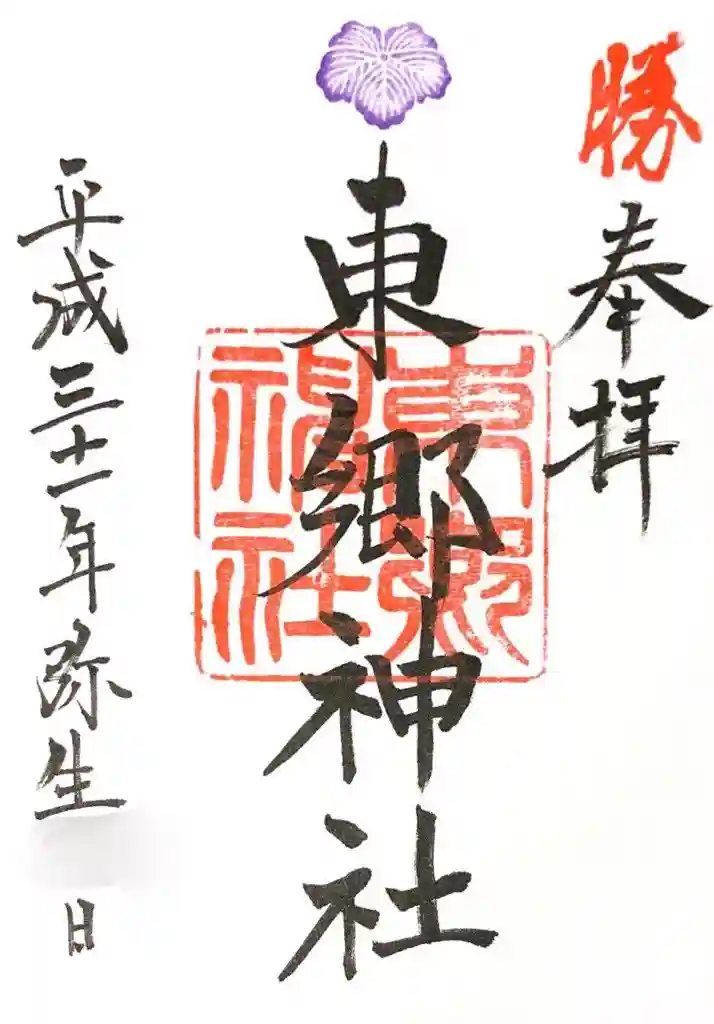 勝
奉拝
東郷神社
東郷神社
平成三十一年弥生
日